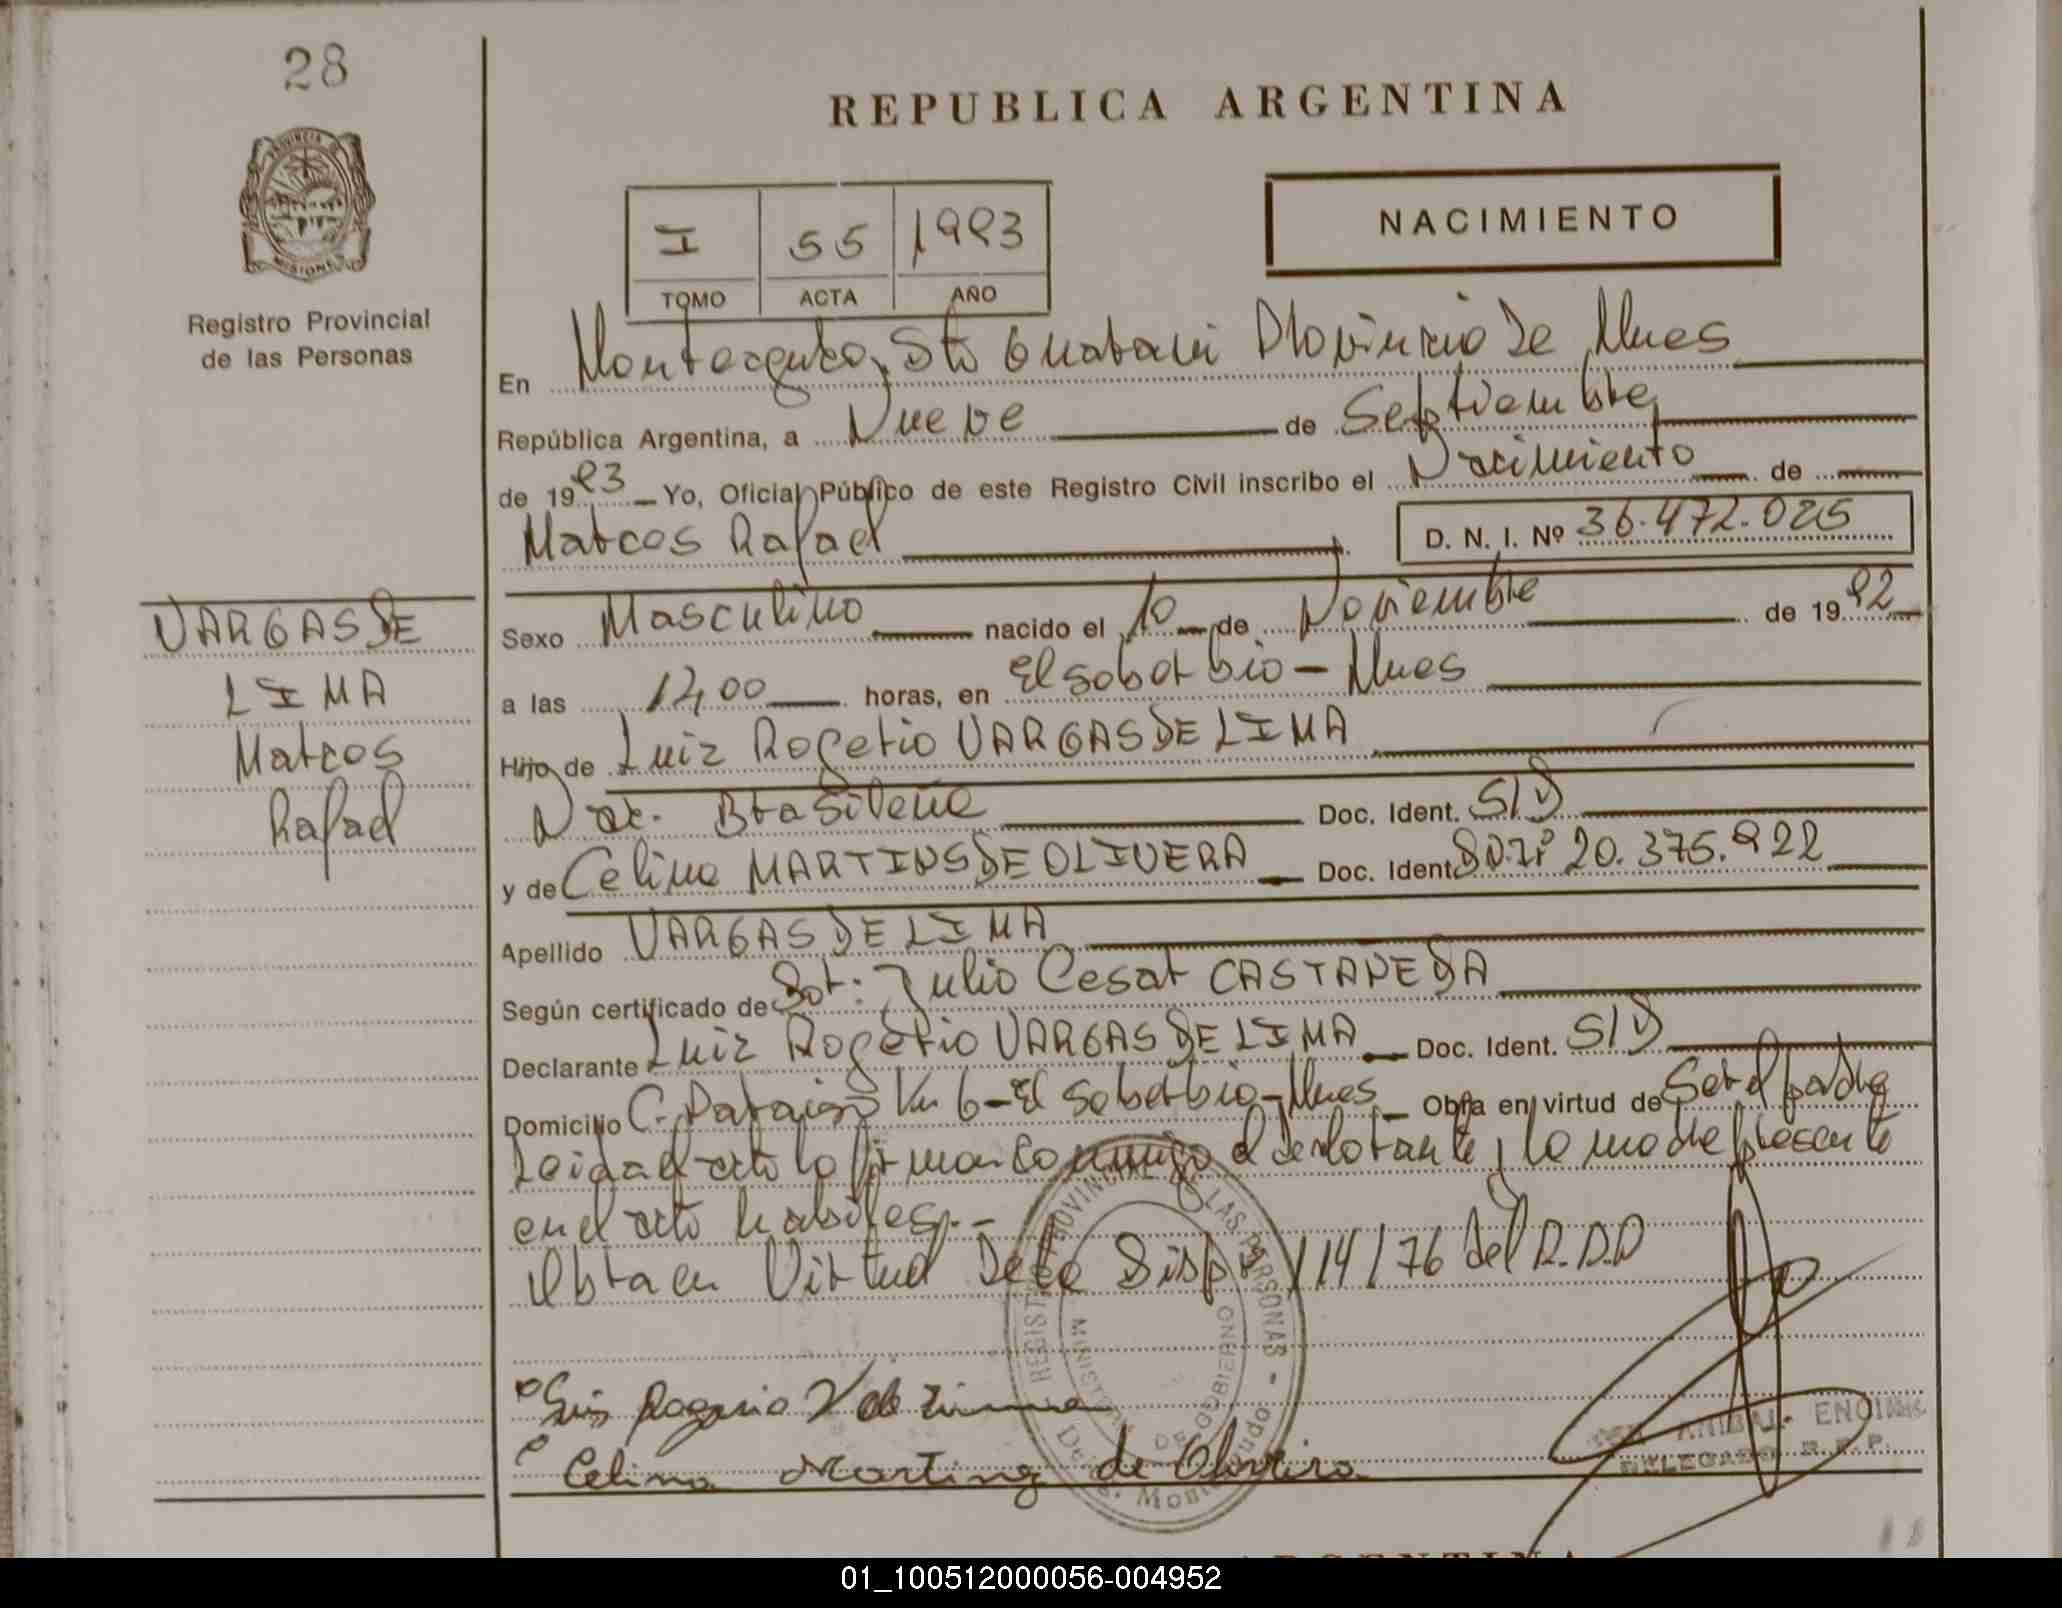 28
REPUBLICA ARGENTINA
PROVINCIA DE
MISIONES
Registro Provincial
de las Personas
NACIMIENTO
I 55 1993
TOMO ACTA AÑO
En Monteagudo, Dto Guarani Provincia de Mnes
República Argentina, a Nueve de Septiembre
de 1993 Yo, Oficial Público de este Registro Civil inscribo el Nacimiento de
Marcos Rafael
D. N. I. Nº 36.472.025
VARGAS DE
LIMA
Marcos
Rafael
Sexo Masculino nacido el 10 de Noviembre de 1992
a las 12,00 horas, en El Soberbio - Mnes
Hijo de Luiz Rogerio VARGAS DE LIMA
Nac. Brasileña Doc. Ident. S/D
y de Celina MARTINS DE OLIVERA Doc. Ident. 20.375.922
Apellido VARGAS DE LIMA
Según certificado de Julio Cesar CASTAÑEDA
Declarante Luiz Rogerio VARGAS DE LIMA Doc. Ident. S/D
Domicilio C. Paraiso Km 6 - El Soberbio - Mnes Obra en virtud de Ser el padre
Leida el acta la firman conmigo el declarante, la madre presente
en el acto habiles.-
Obra en Virtud De la Disp. 114/76 del R.P.P
REGISTRO PROVINCIAL DE LAS PERSONAS -
MINISTERIO DE GOBIERNO
Monteagudo
Luis Rogerio V de Lima
Celina Martins de Oliveira
ANIBAL ENCINAS
DELEGADO R.P.P.
ARGENTINA
01_100512000056-004952